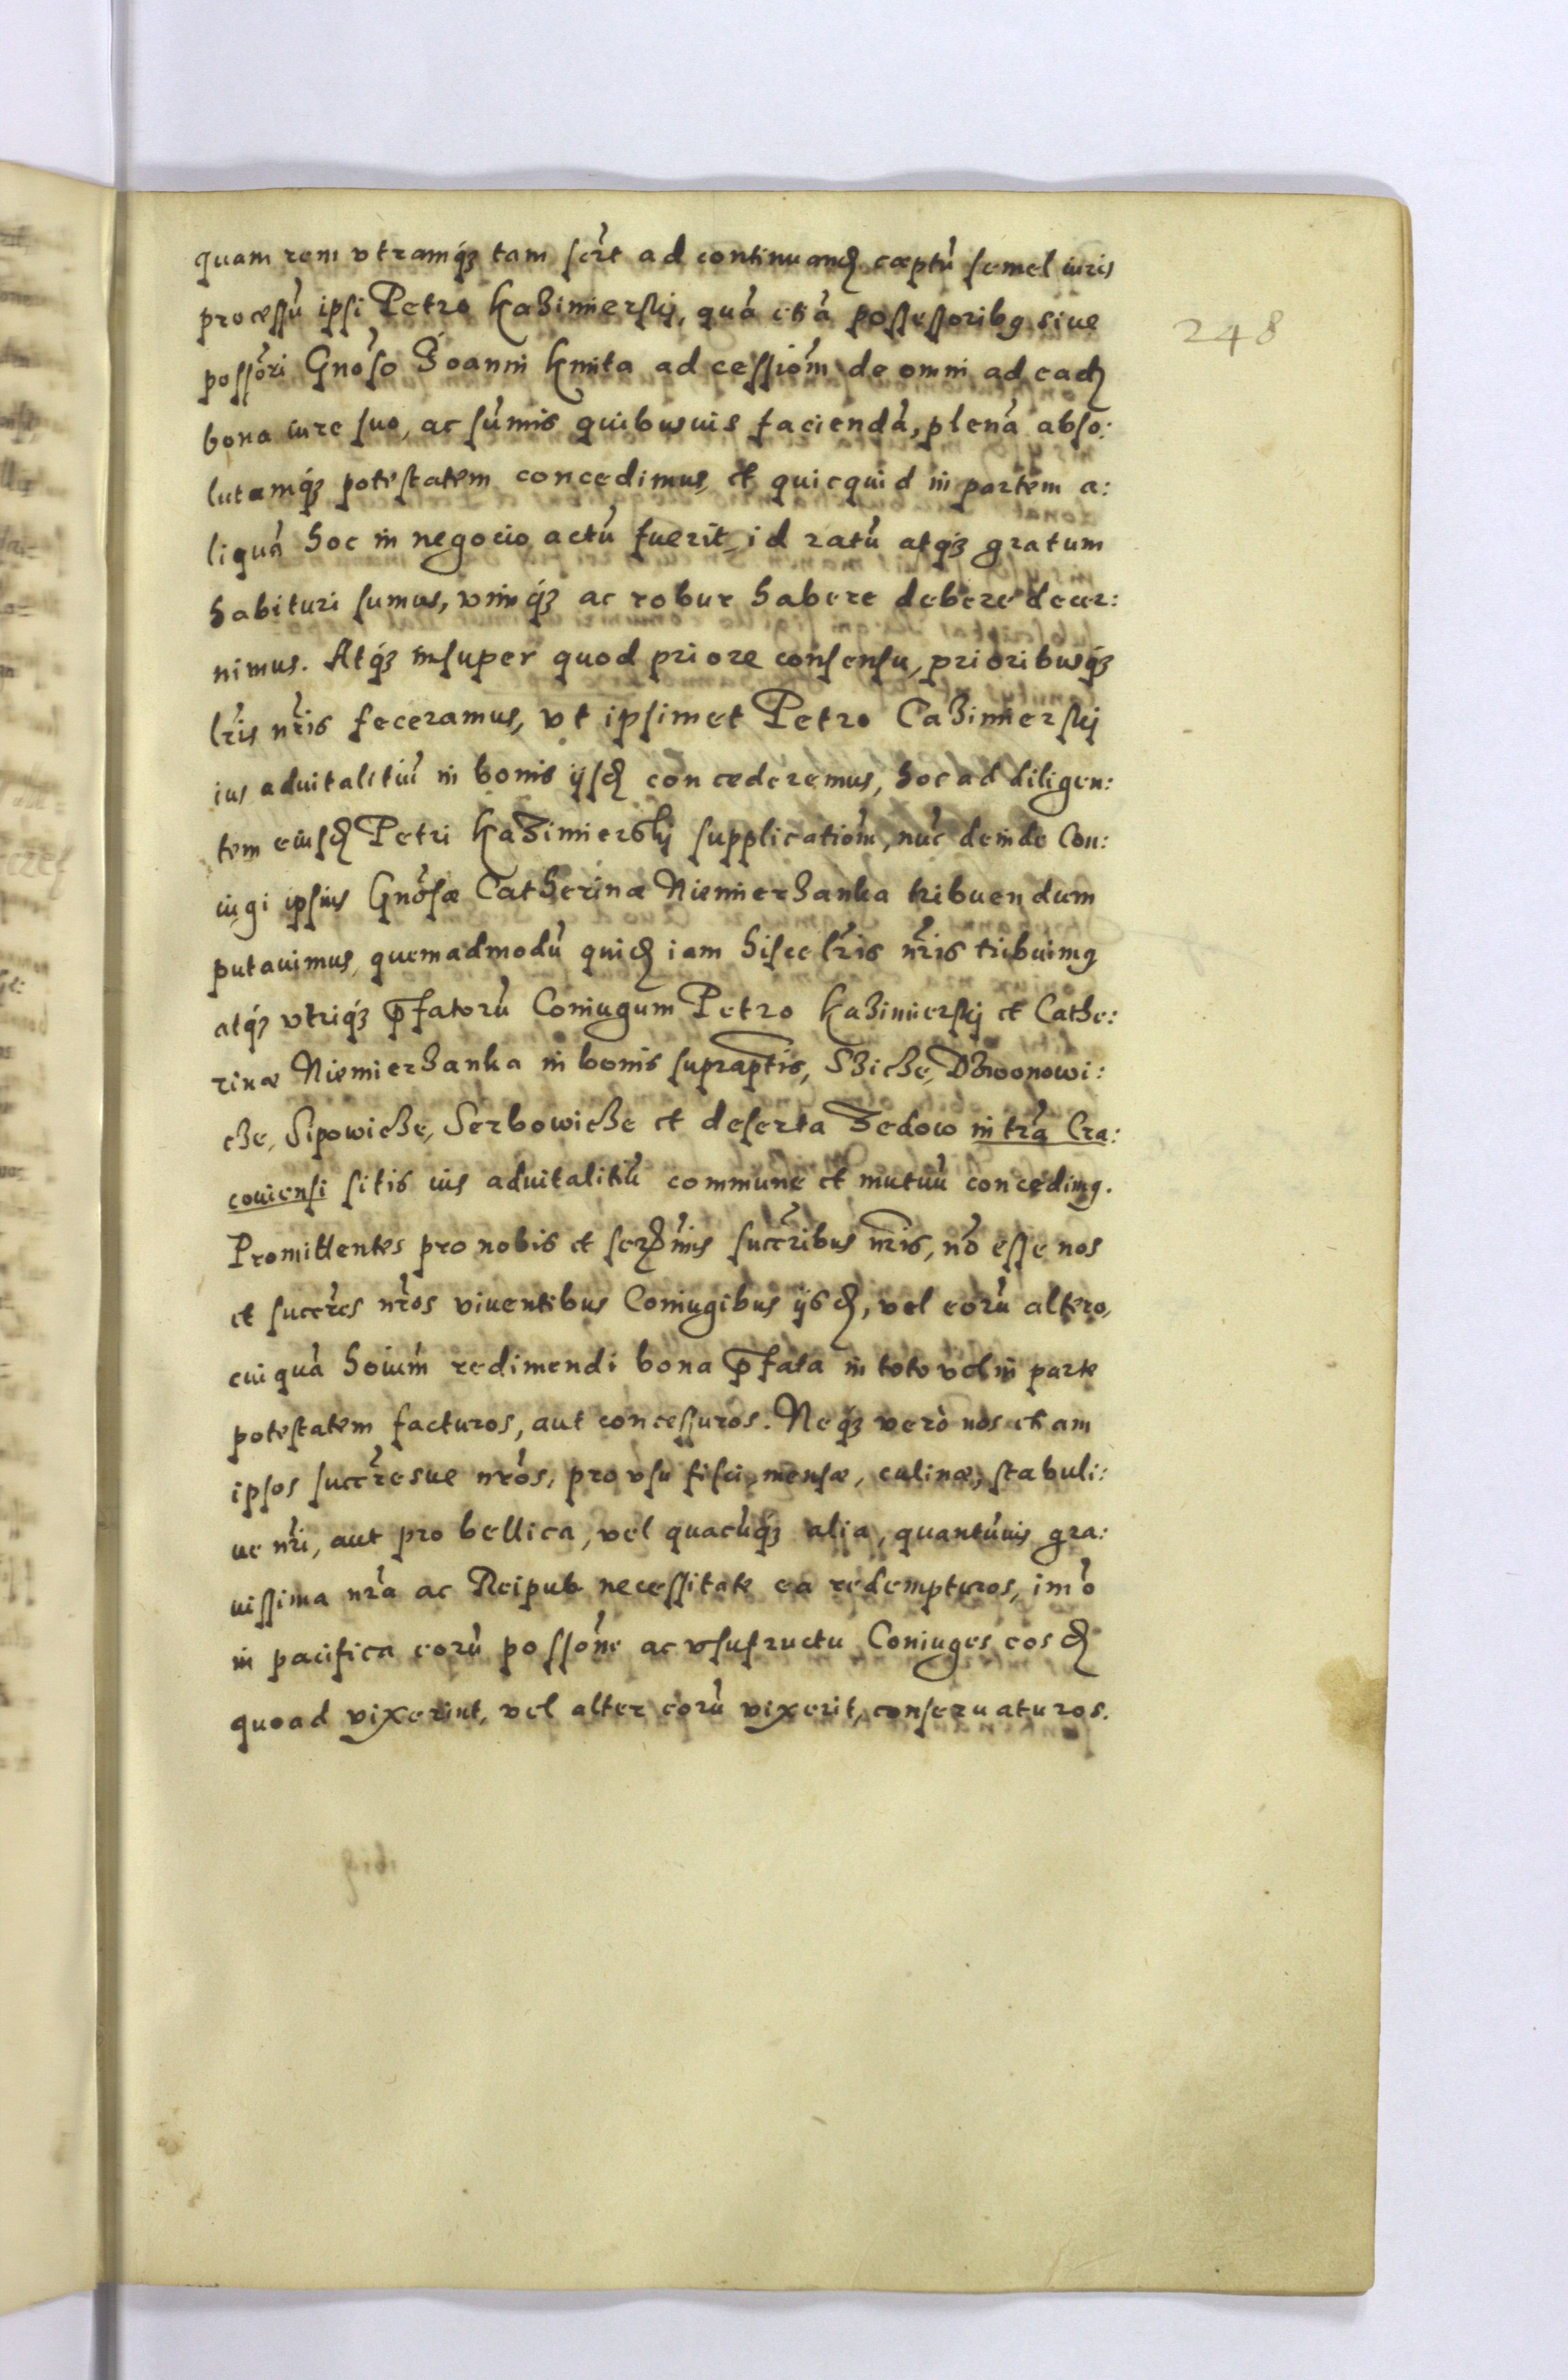 quam rem vtramq́ꝫ tam scr̃t ad continuandꝫ cæptũ semel iuris
processũ ipsi Petro Kaźimierskij, quã etiã possessoribꝰ siue
poss̃ori Gnõso Joanni Kmita ad cessiõm de omni ad eadꝫ
bona iure suo, ac sum̃is quibusuis faciendã, plenã abso:
lutamq́ꝫ potestatem concedimus, et quicquid in partem a:
liquã hoc in negocio actũ fuerit, id ratũ atq́ꝫ gratum
habituri sumus, vimq́ꝫ ac robur habere debere decer:
nimus. Atq́ꝫ insuper quod priore consensu, prioribusq́ꝫ
lr̃is nr̃is feceramus, vt ipsimet Petro Caźimierskij
ius aduitalitiũ in bonis ijsdꝫ concederemus, hoc ad diligen:
tem eiusdꝫ Petri Kaźimierskij supplicatiõm, nũc deinde Con:
iugi ipsius Gnõsæ Catherinæ Niemierzanka tribuendum
putauimus, quemadmodũ quidꝫ iam hisce lr̃is nr̃is tribuimꝰ
atq́ꝫ vtriq́ꝫ p̃fatorũ Coniugum Petro Kaźimierskij et Cathe:
rinæ Niemierzanka in bonis suprap̃tis, Sziczę, Dzwonowi:
cze, Sipowicze, Serbowicze et deserta Zedow in tr̃a Cra:
couiensi sitis ius aduitalitiũ commune et mutuũ concedimꝰ.
Promittentes pro nobis et serꝫm̃is succr̃ibus nr̃is, nõ esse nos
et succr̃es nr̃os viuentibus Coniugibus ijsdꝫ, vel eorũ altero,
cuiquã hoium̃ redimendi bona p̃fata in toto vel in parte
potestatem facturos, aut concessuros. Neq́ꝫ verò nos etiam
ipsos succr̃esue nr̃os, pro vsu fisci, mensæ, culinæ, stabuli:
ue nr̃i, aut pro bellica, vel quacũq́ꝫ alia, quantũuis gra:
uissima nr̃a ac Reipub necessitate ea redempturos, imò
in pacifica eorũ possõne ac vsufructu Coniuges eosdꝫ
quoad vixerint, vel alter eorũ vixerit, conseruaturos.
248